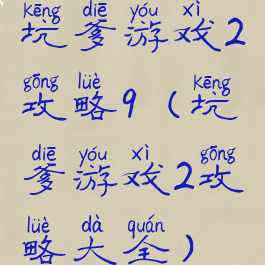 kēng diē yóu xì
坑爹游戏2
gōng lüè kēng
攻略9（坑
diē yóu xì gōng
爹游戏2攻
lüè dà quán
略大全）